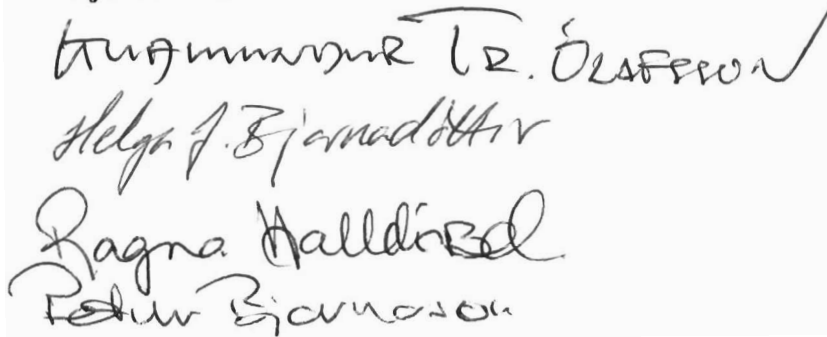 Tr. Ólafsson
Helga J. Bjarnadóttir
Ragna Halldórsd
Pétur Bjarnason